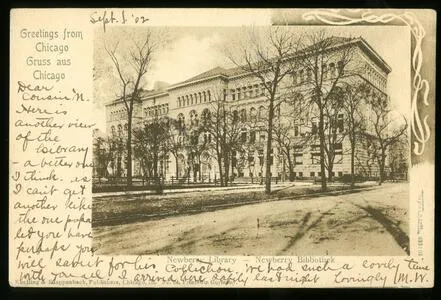 Sept. 1, '02
Greetings from
Chicago
Gruss aus
Chicago
Dear
Cousin N.
Here is
another view
of the
library
- a better one
I think. as
I can't get
another like
the one papa
let you have
perhaps you
will submit for his collection. We had such a lovely time
with you all. I arrived here safely last night. Lovingly M. W.
Newberry Library — Newberry Bibliothek
Koelling & Klappenbach, Publishers, Chicago, Ill.